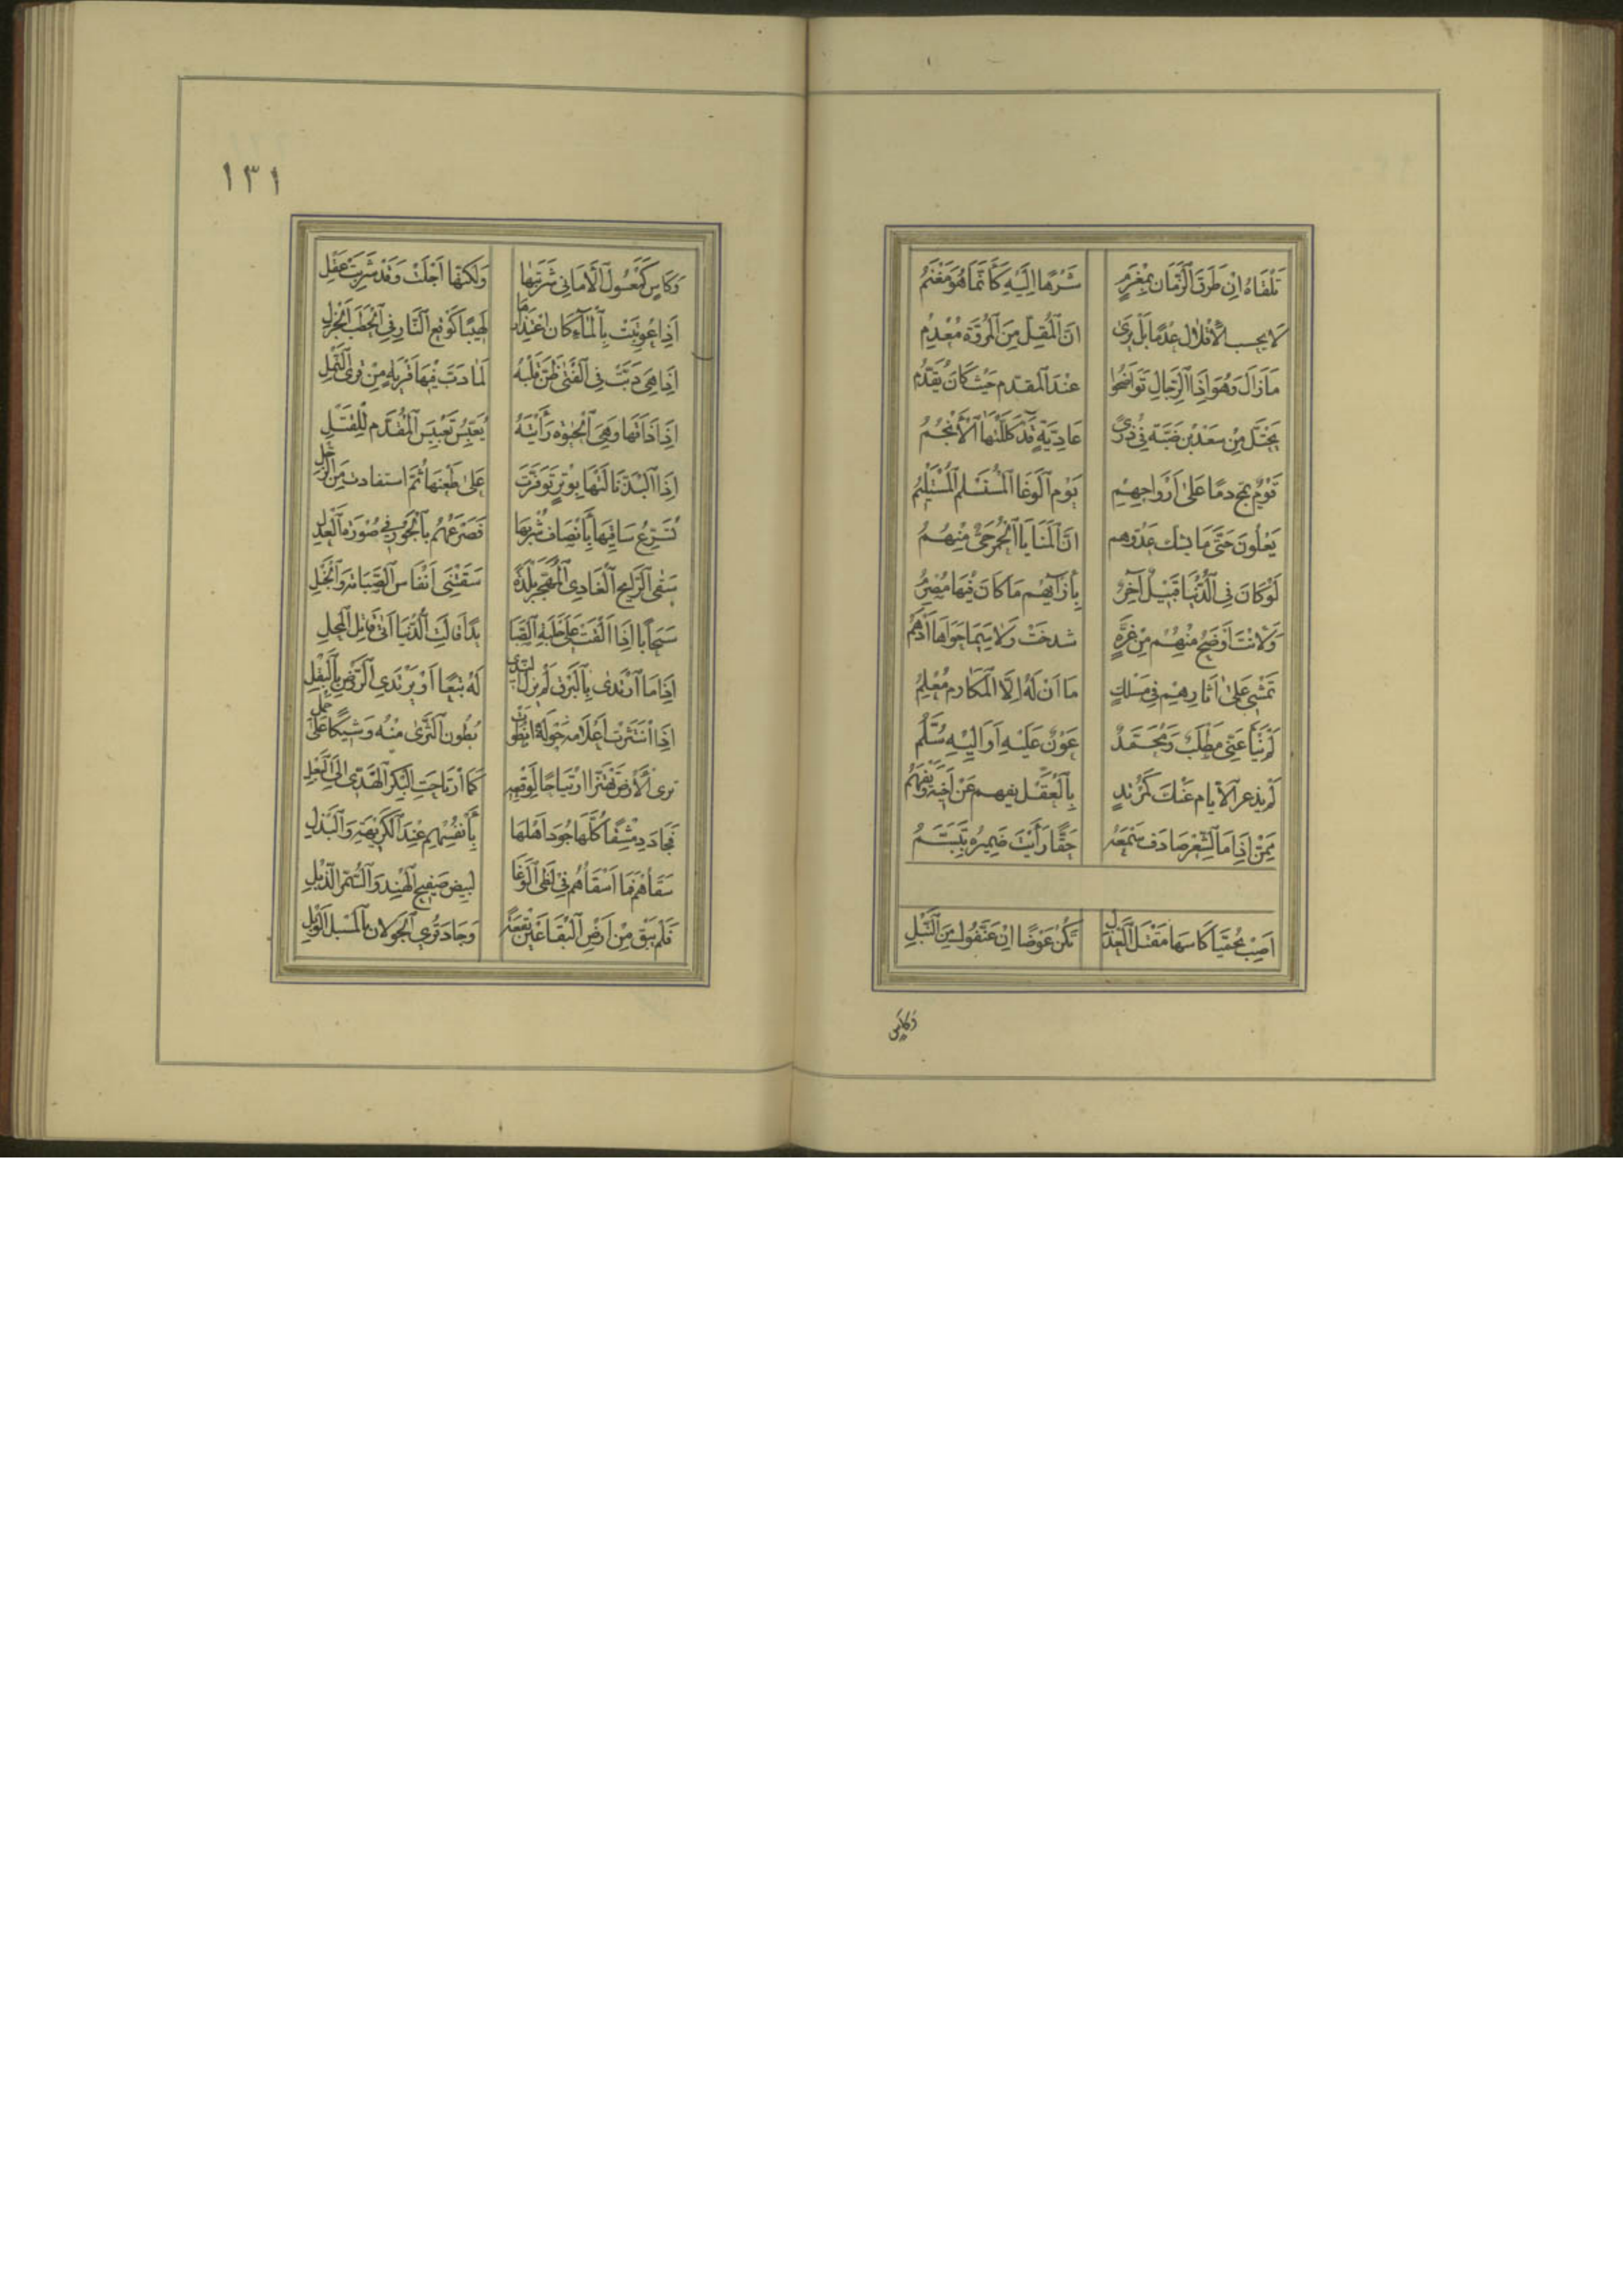 تَلْقَاهُ اِنْ طَرَقَ الزَّمَان بِمَغْرَمٍ شَرِهًا اِلَيْهِ كَاَنَّمَا هُوَ مَغْنَمُ
لا يحسب الاقلال عُدمًا بَلْ يَرَى اَنَّ المُقِلَّ مِنَ المُرُوَّةِ مُعْدِمُ
مَا زَالَ وَهُوَ اِذَا الرِّجَالِ تَوَاضَحُوا عِنْدَ المقدم حَيْثُ كَانَ يُقَدَّمُ
يَحْتَلُّ مِنْ سَعْدِ بْنِ ضَبَّة فِي ذُرَى عَادِيَّةٍ قَدْ كَلَّلَتْهَا الْاَنْجُمُ
قَوْمٌ يَمُجّ دمًا عَلَى اَرْوَاحِهِمْ يَوْم الوَغَا المُسْتَسْلِم المُسْتَلْئِمُ
يَعْلُونَ حَتَّى مَا يشك عَدُوّهم اَنَّ المَنَايَا الحُمْر حَىٌّ مِنْهُمُ
لَوْ كَانَ فِي الدُّنْيَا قَبِيلٌ آخَرٌ بِاِزَآئِهِم مَا كَانَ فِيهَا مُصْرِمُ
وَلَأَنْتَ اَوْضَحُ مِنْهُم مِنْ غُرَّةٍ شدخَتْ وَلا سِيَمَا حَوَاهَا اَدْهَمُ
تَمْشِي عَلَى اثَارِهِمْ فِي مَسْلكٍ مَا اَنْ لَهُ اِلَّا المَكَارم مُعْلِمُ
لَمْ يَنْأَ عَنِّي مَطْلَبٌ وَمُحَمَّدٌ عَوْنٌ عَلَيْهِ اَوَ اِلَيْهِ سُلَّمُ
لَمْ يذعر الايام عَنْكَ كَمُرْتَدٍ بِالعَقْل يفهم عَنْ اَخِيْهِ وَيُفْهِمُ
مِمَّنْ اِذَا مَا الشِّعْر صَادَف سَمْعَهُ حَقًّا رَأَيْتَ ضَمِيرهُ يَتَبَسَّمُ
اَصِبْ بِحُمَيَّا كَاسهَا مَقْتَلَ العَذْلِ تَكُنْ عِوَضًا اِنْ عَنَّفُوكَ مِنَ التَّبْلِ
وَكَاسٍ
١٣١
وَكَاسٍ كَمَعْسُولِ الاَمَانِي شَرِبْتُهَا وَلَكِنَّهَا اَجْلَتْ وَقَدْ شَرِبَتْ عَقْلِي
اِذَا عُوتِبَتْ بِالمَآءِ كَانَ اعْتِذَارُهَا لَهِيبًا كَوَقْعِ النَّارِ فِي الحَطَب الجَزْلِ
اِذَا هِيَ دَبَّتْ فِي الفَتَى ظَنّ قَلْبُهُ لمَا دَبَّ فِيهَا قَرْيَة مِنْ قُرَى النَّمْلِ
اِذَا ذَاقَهَا وَهِيَ الحَيوة رَأَيْتَهُ يُعَبِّسُ تَعْبِيسَ المُقَدَّمِ لِلقَتْلِ
اِذَا اليَدُ نَالَتْهَا بِوِتْرٍ تَوَقَّرَتْ عَلَى ضِعْنِهَا ثُمَّ استقادت مِنَ الرِّجْلِ
تُسَرِّعُ سَاقِيهَا بِاِنْصَافِ شُرْبهَا فَصَرْعَهُم بِالجَوْر فِي صُوْرَةِ العَدْلِ
سَقَى الرَّايِحُ الغَادِي المُهَجِّرُ بَلْدَةً سَقَتْنِيَ اَنْفَاس الصَّبَابَة وَالخَبْلِ
سَحَابًا اِذَا اَلْقَتْ عَلَى خلفِهِ الصَّبَا يَدًا قَالَتِ الدُّنْيَا اَتَى قَاتِل المَحلِ
اِذَا مَا ارْتَدَى بِالبَرْقِ لَمْ يَزَلِ النَّدَى لَهُ تَبَعًا اَوْ يَرْتَدِي الرَّوْض بِالبَقْلِ
اِذَا انْتَثَرَتْ اَعْلَامهُ حَوْلَهُ انْطَوَتْ بُطُون الثَّرَى مِنْهُ وَشِيكًا عَلَى حَمْلِ
تَرَى الاَرْضَ تَهْتَزُّ ارْتِيَاحًا لِوَقْعِهِ كَمَا ارْتَاحَتِ البِكْر الهَدِيّ اِلَى البَعْلِ
فَجَادَ دِمَشْقًا كُلَّهَا جُودَ اَهْلهَا بِاَنْفُسِهِم عِنْدَ الكَرِيهَةِ وَالبَذْلِ
سَقَاهُم كَمَا اَسْقَاهُم فِي لَظَى الوَغَا لِبِيضِ صَفِيحِ الهِنْدِ وَالسُّمُر الذُّبْلِ
فَلَمْ يَبْق مِنْ اَرْضِ البِقَاعَيْنِ بُقْعَةٌ وَجَادَ قُرَى الجَوْلان بِالمُسْبَل الوَبْلِ